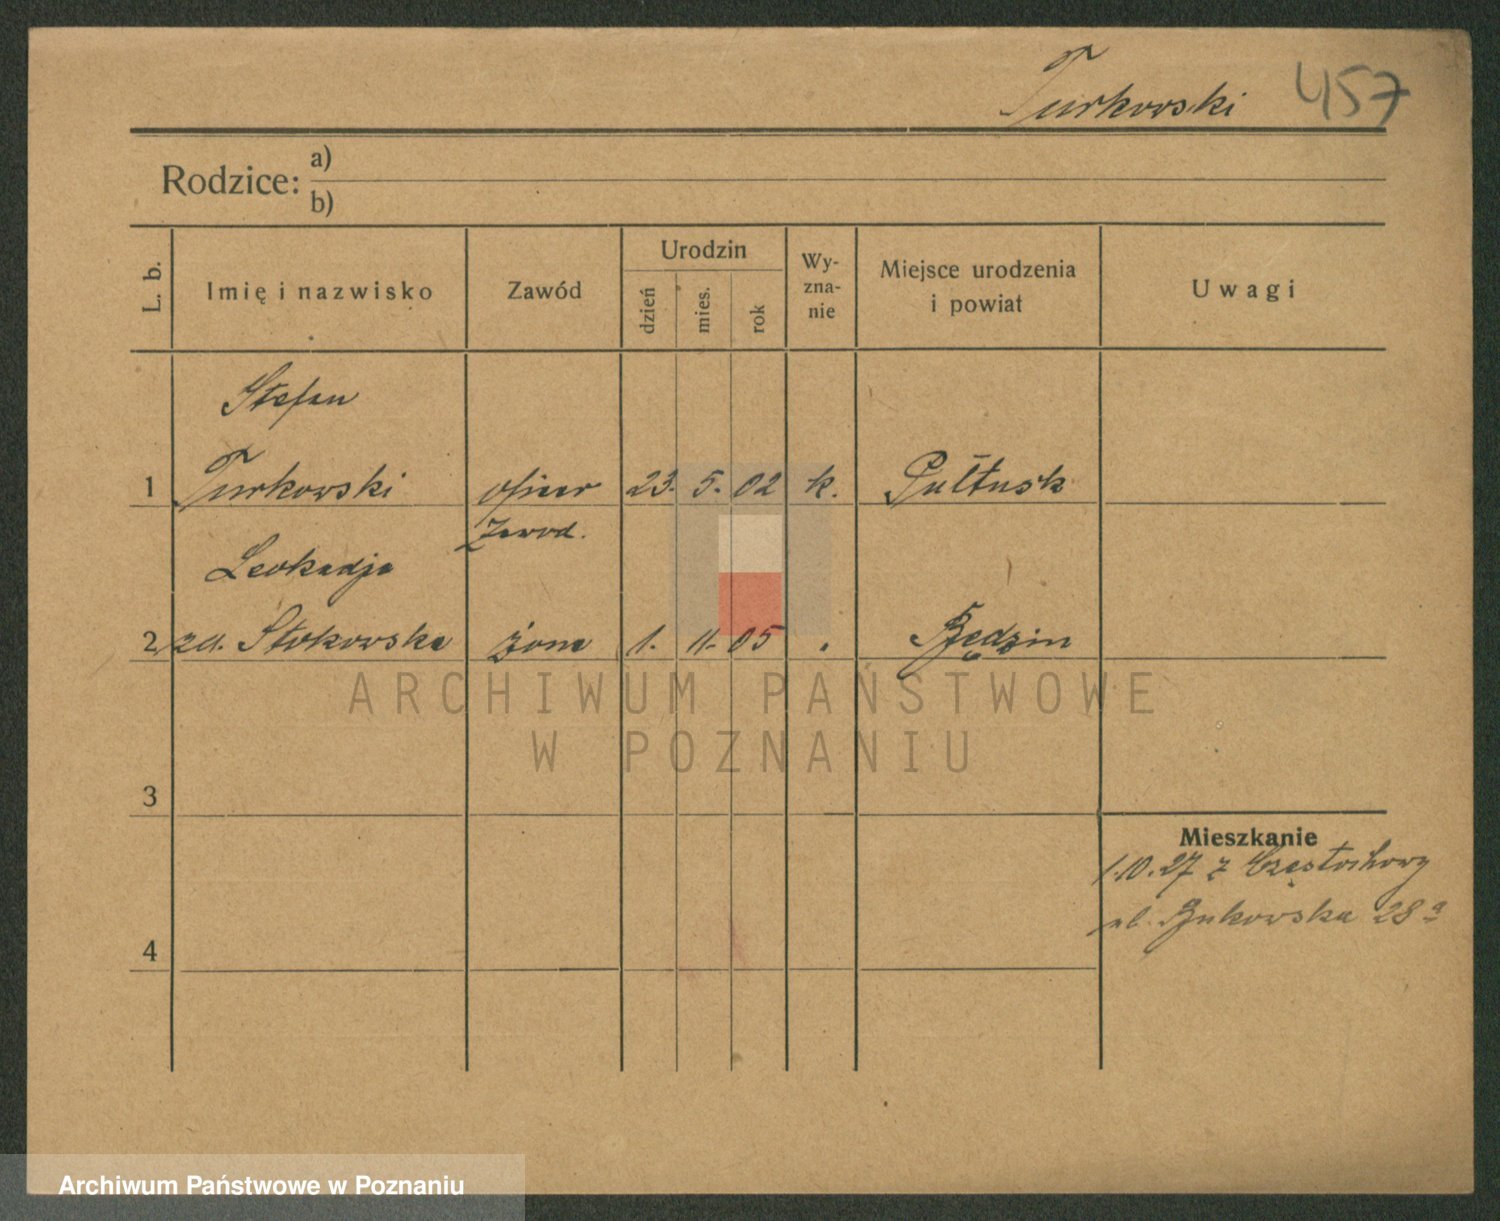 Turkowski 457
Rodzice: a)
b)
L. b. Imię i nazwisko Zawód Urodzin dzień mies. rok Wy-zna-nie Miejsce urodzenia i powiat Uwagi
Stefan
1 Turkowski oficer 23. 5. 02 k. Pułtusk
zawod.
Leokadja
2 zd. Stokowska żona 1. 11. 05 " Będzin
ARCHIWUM PAŃSTWOWE
W POZNANIU
3
Mieszkanie
1.10.27 z Częstochowy
ul. Bukowska 28a
4
Archiwum Państwowe w Poznaniu